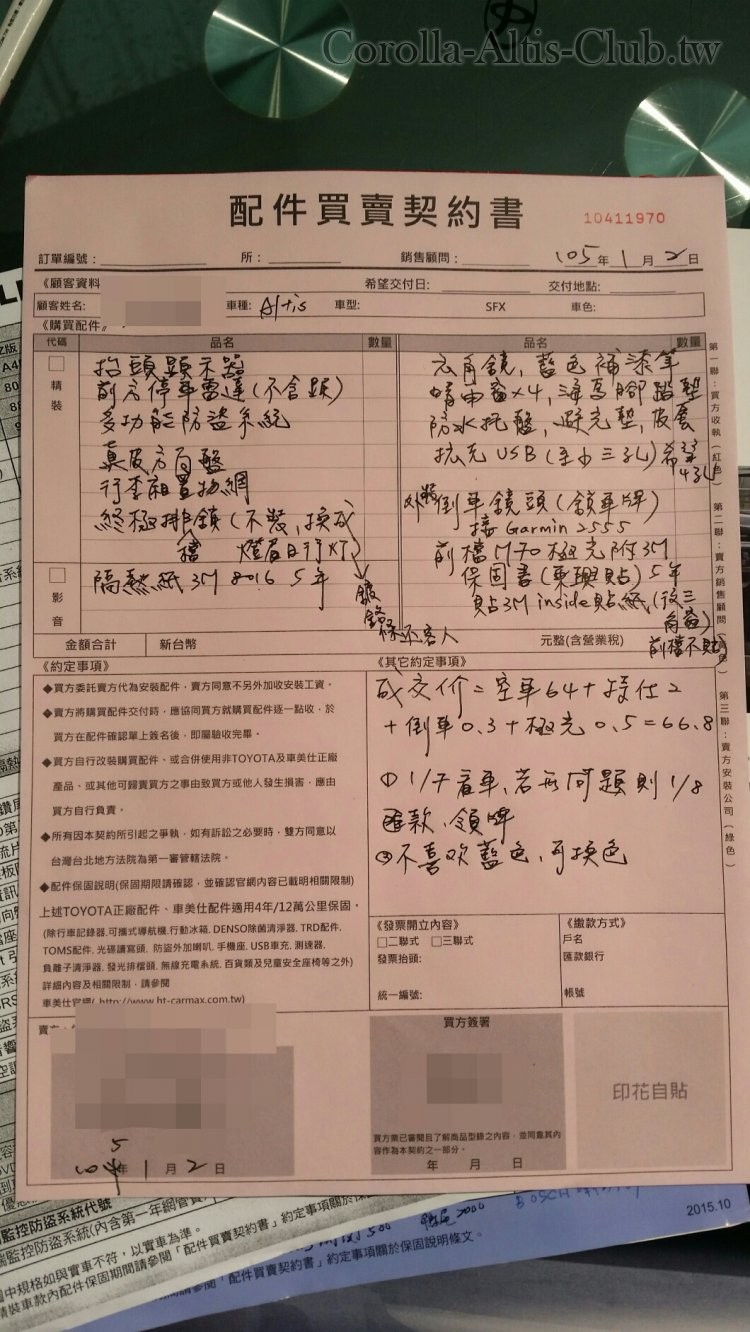 Corolla-Altis-Club.tw
配件買賣契約書
10411970
訂單編號: 所: 銷售顧問: 105年 1月 2日
《顧客資料 希望交付日: 交付地點:
顧客姓名: 車種: Altis 車型: SFX 車色:
《購買配件》
代碼 品名 數量 品名 數量
精裝
抬頭顯示器
前方停車雷達(不含顯)
多功能防盜系統
真皮方向盤
行李廂置物網
終極排檔鎖(不裝,換成
燈眉日行灯)
鍍鉻
還客人
影音
隔熱紙 3M 8016 5年
六角鏡,藍色補漆筆
晴雨窗×4,海馬腳踏墊
防水托盤,避光墊,皮套
擴充USB(至少三孔)希望4孔
外裝倒車鏡頭(鎖車牌)
接Garmin 2555
前檔M70極光附3M
保固書(東興貼)5年
貼3M inside貼紙(後三角窗)
前檔不貼
金額合計 新台幣 元整(含營業稅)
《約定事項》
◆買方委託賣方代為安裝配件,賣方同意不另外加收安裝工資。
◆賣方將購買配件交付時,應協同買方就購買配件逐一點收,於
買方在配件確認單上簽名後,即屬驗收完畢。
◆買方自行改裝購買配件、或合併使用非TOYOTA及車美仕正廠
產品、或其他可歸責買方之事由致買方或他人發生損害,應由
買方自行負責。
◆所有因本契約所引起之爭執,如有訴訟之必要時,雙方同意以
台灣台北地方法院為第一審管轄法院。
◆配件保固說明(保固期限請確認,並確認官網內容已載明相關限制)
上述TOYOTA正廠配件、車美仕配件適用4年/12萬公里保固。
(除行車記錄器.可攜式導航機.行動冰箱. DENSO除菌清淨器. TRD配件.
TOMS配件. 光碟讀寫頭. 防盜外加喇叭. 手機座. USB車充. 測速器.
負離子清淨器. 發光排檔頭. 無線充電系統. 百貨類及兒童安全座椅等之外)
詳細內容及相關限制,請參閱
車美仕官網( http://www.ht-carmax.com.tw)
《其它約定事項》
成交价=空車64+援仕2
+倒車0.3+極光0.5=66.8
①1/7看車,若無問題則1/8
匯款、領牌
②不喜欢藍色,可換色
《發票開立內容》
□二聯式 □三聯式
發票抬頭:
統一編號:
《繳款方式》
戶名
匯款銀行
帳號
賣方
105年 1月 2日
買方簽署
買方業已審閱目了前商品型錄之內容,並同意其內
容作為本契約之一部分。
年 月 日
印花自貼
第一聯:買方收執(紅色) 第二聯:賣方銷售顧問 第三聯:賣方安裝公司(綠色)
2015.10
監控防盜系統代號
端監控防盜系統(內含第一年網管費
圖中規格如與實車不符,以實車為準。
精裝車款內配件保固期間請參閱「配件買賣契約書」約定事項關於保
「配件買賣契約書」約定事項關於保固說明條文。